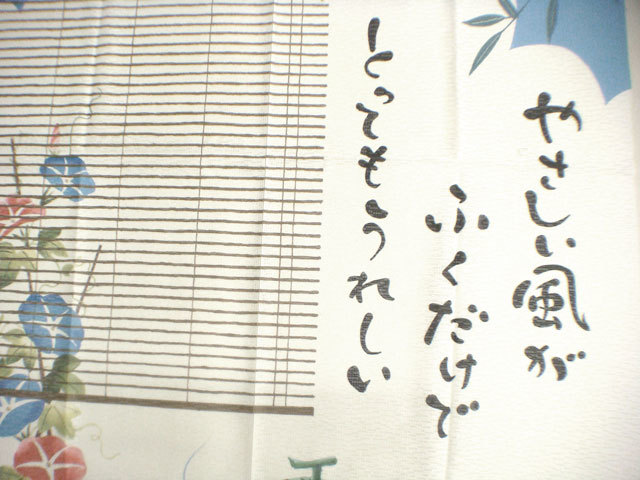 やさしい風が
ふくだけで
とってもうれしい